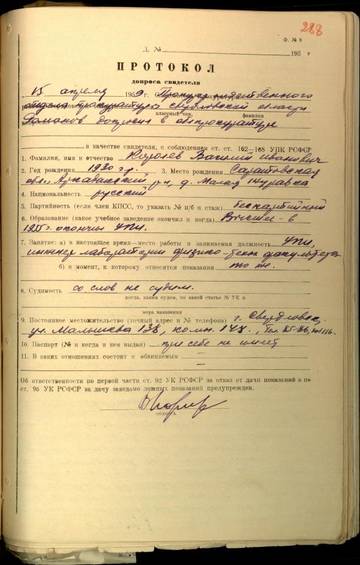 288
Ф. № 8
Д. №
195 г
ПРОТОКОЛ
допроса свидетеля
15 апреля 1959 г. Прокурор следственного
отдела прокуратуры Свердловской области
классный чин фамилия
Романов допросил в облпрокуратуре
в качестве свидетеля, с соблюдением ст. ст. 162—168 УПК РСФСР
1. Фамилия, имя и отчество Королев Василий Иванович
2. Год рождения 1930 г. 3. Место рождения Саратовская
обл. р-н, д. Малая Журавка
4. Национальность русский
5. Партийность (если член КПСС, то указать № п/б и стаж) беспартийный
6. Образование (какое учебное заведение окончил и когда) Высшее - в
1955 г. окончил УПИ.
7. Занятие: а) в настоящее время—место работы и занимаемая должность УПИ,
инженер лаборатории физико-техн. факультета
б) в момент, к которому относятся показания то же.
8. Судимость со слов не судим.
когда, каким судом, по какой статье УК
9. Постоянное местожительство (точный адрес и № телефона) г. Свердловск,
ул. Малышева 138, комн. 148,
10. Паспорт (№ и когда и кем выдан) при себе не имеет
11. В каких отношениях состоит с обвиняемых —
Об ответственности по первой части ст. 92 УК РСФСР за отказ от дачи показаний и по
ст. 95 УК РСФСР за дачу заведомо ложных показаний предупрежден.
подпись